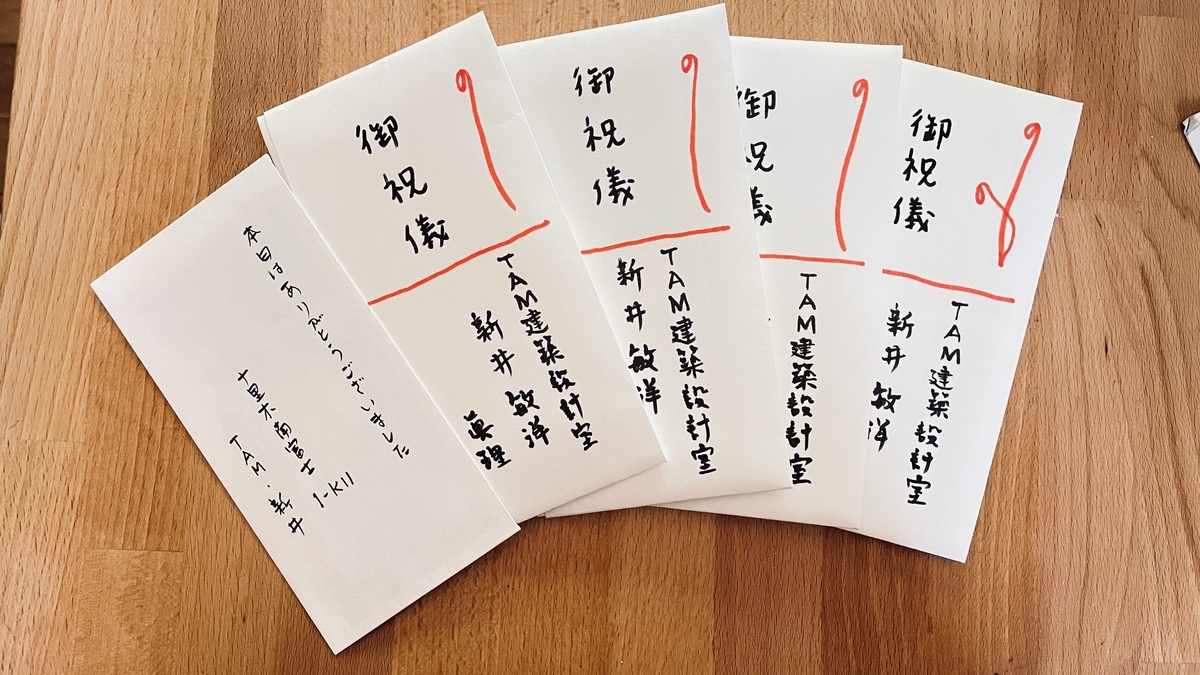 本日はありがとうございました
TAM・新井
御祝儀
TAM建築設計室
新井 敏洋
眞理
御祝儀
TAM建築設計室
新井 敏洋
御祝儀
TAM建築設計室
御祝儀
TAM建築設計室
新井 敏洋